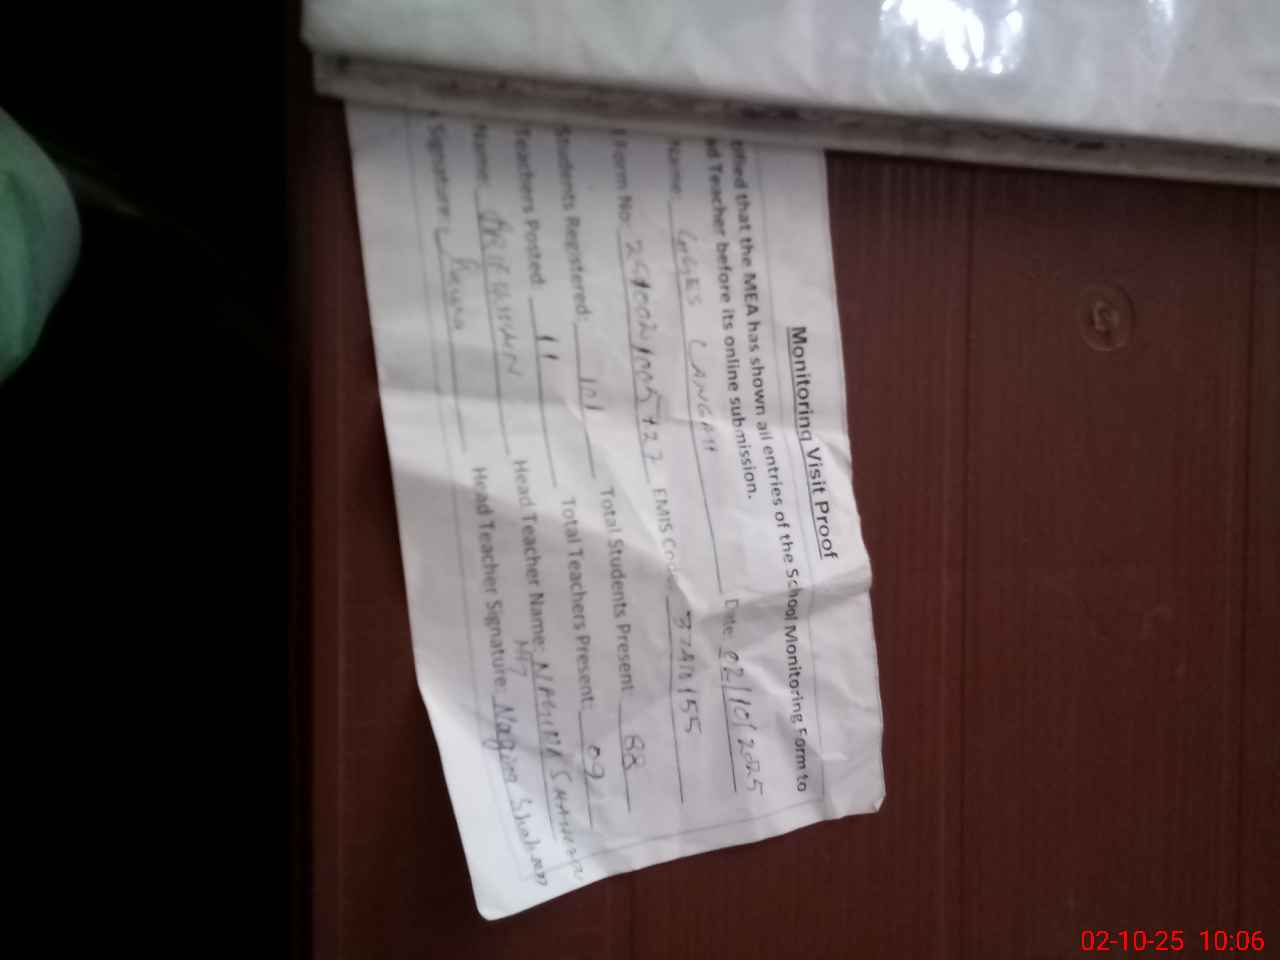 Monitoring Visit Proof
tified that the MEA has shown all entries of the School Monitoring Form to
ad Teacher before its online submission.
Name: GGES LANGAH Date: 02/10/2025
Form No: EMIS Code:
Students Registered: 101 Total Students Present: 88
Teachers Posted: 11 Total Teachers Present: 09
Name: Head Teacher Name: NAGINA SHAHEEN
Signature: Head Teacher Signature: Nagina Shaheen
02-10-25 10:06